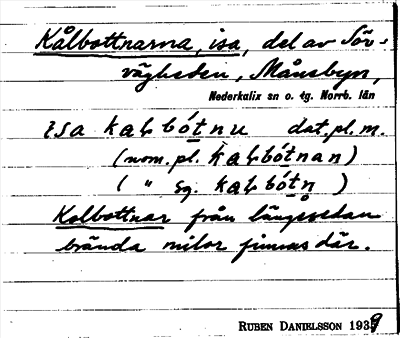 Kålbottnarna, isa, del av Sör-
vägheden, Månsbyn,
Nederkalix sn o. tg. Norrb. län
isa kaḷbótnu dat.pl.m.
(nom.pl. kaḷbótnan)
( " sg. kaḷbótn̥ )
Kolbottnar från längesedan
brända milor finnas där.
RUBEN DANIELSSON 1939